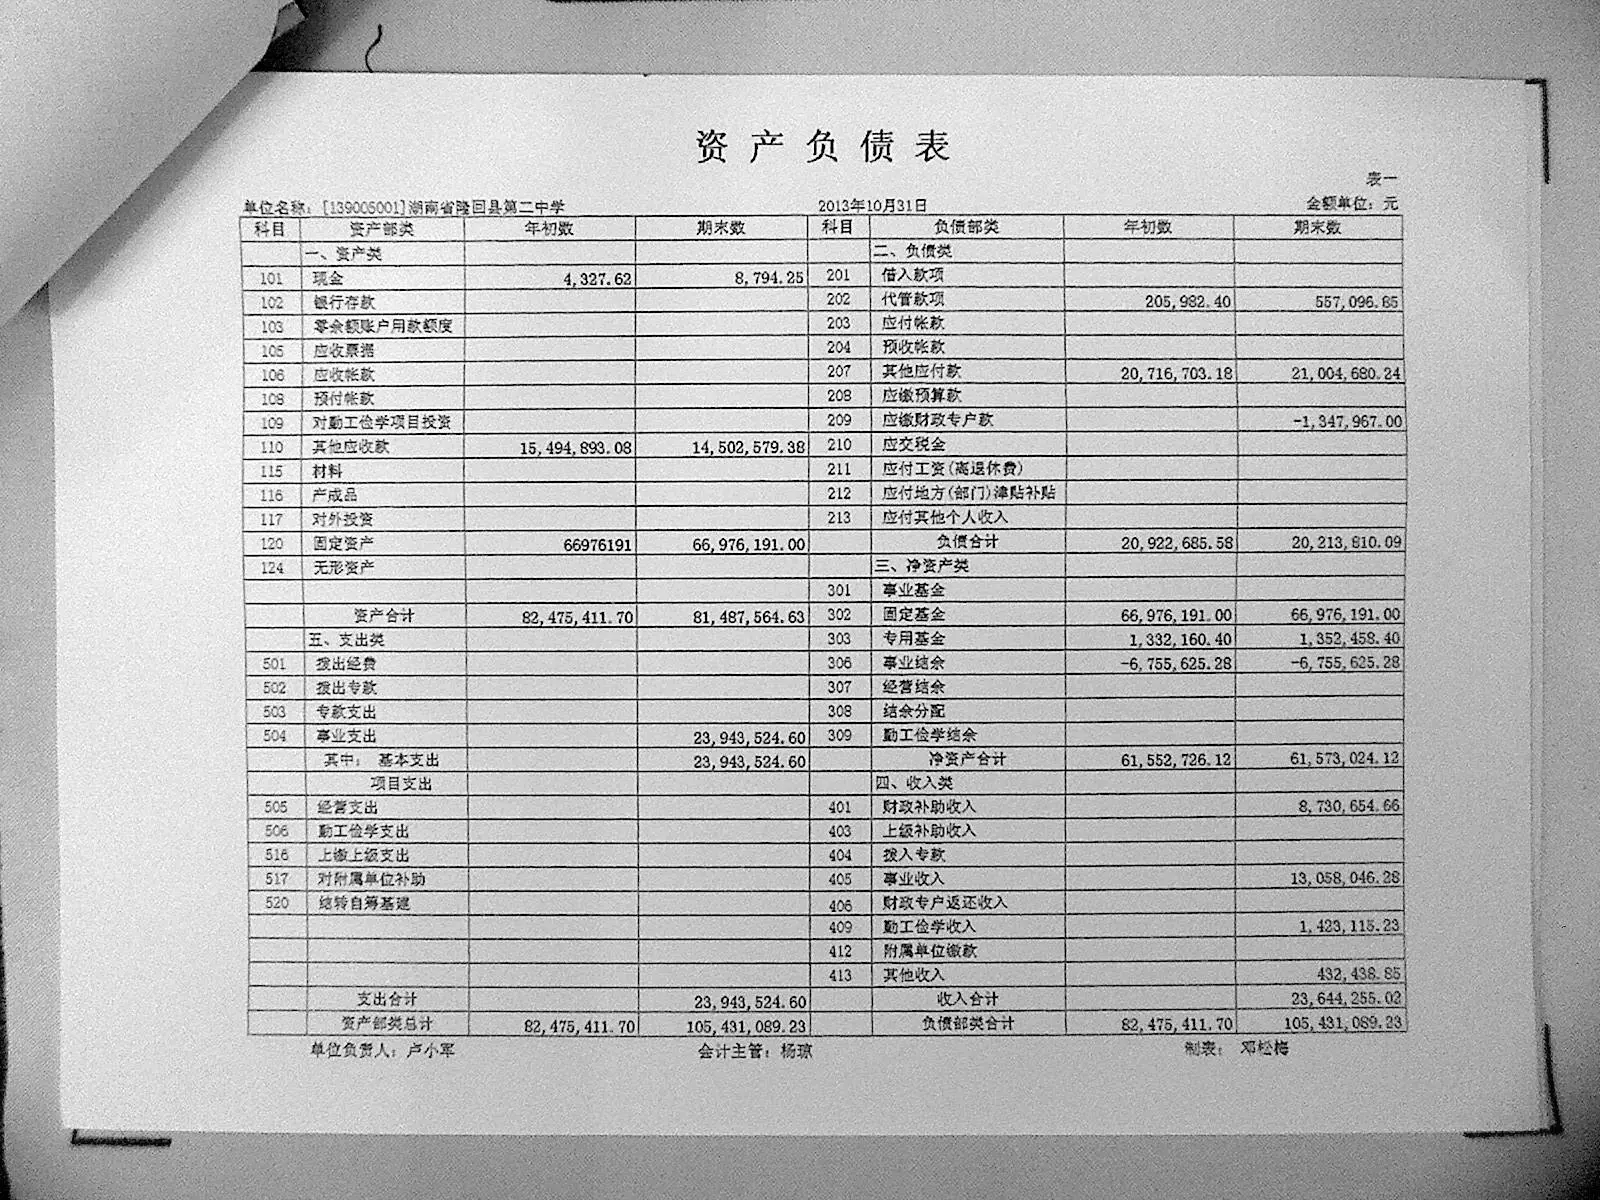 资产负债表
表一
单位名称：[139005001]湖南省隆回县第二中学 2013年10月31日 金额单位：元
科目 资产部类 年初数 期末数 科目 负债部类 年初数 期末数
一、资产类 二、负债类
101 现金 4,327.62 8,794.25 201 借入款项
102 银行存款 202 代管款项 205,982.40 557,096.85
103 零余额账户用款额度 203 应付帐款
105 应收票据 204 预收帐款
106 应收帐款 207 其他应付款 20,716,703.18 21,004,680.24
108 预付帐款 208 应缴预算款
109 对勤工俭学项目投资 209 应缴财政专户款 -1,347,967.00
110 其他应收款 15,494,893.08 14,502,579.38 210 应交税金
115 材料 211 应付工资(离退休费)
116 产成品 212 应付地方(部门)津贴补贴
117 对外投资 213 应付其他个人收入
120 固定资产 66976191 66,976,191.00 负债合计 20,922,685.58 20,213,810.09
124 无形资产 三、净资产类
301 事业基金
资产合计 82,475,411.70 81,487,564.63 302 固定基金 66,976,191.00 66,976,191.00
五、支出类 303 专用基金 1,332,160.40 1,352,458.40
501 拨出经费 306 事业结余 -6,755,625.28 -6,755,625.28
502 拨出专款 307 经营结余
503 专款支出 308 结余分配
504 事业支出 23,943,524.60 309 勤工俭学结余
其中： 基本支出 23,943,524.60 净资产合计 61,552,726.12 61,573,024.12
项目支出 四、收入类
505 经营支出 401 财政补助收入 8,730,654.66
506 勤工俭学支出 403 上级补助收入
516 上缴上级支出 404 拨入专款
517 对附属单位补助 405 事业收入 13,058,046.28
520 结转自筹基建 406 财政专户返还收入
409 勤工俭学收入 1,423,115.23
412 附属单位缴款
413 其他收入 432,438.85
支出合计 23,943,524.60 收入合计 23,644,255.02
资产部类总计 82,475,411.70 105,431,089.23 负债部类合计 82,475,411.70 105,431,089.23
单位负责人：卢小军 会计主管：杨琼 制表： 邓松梅